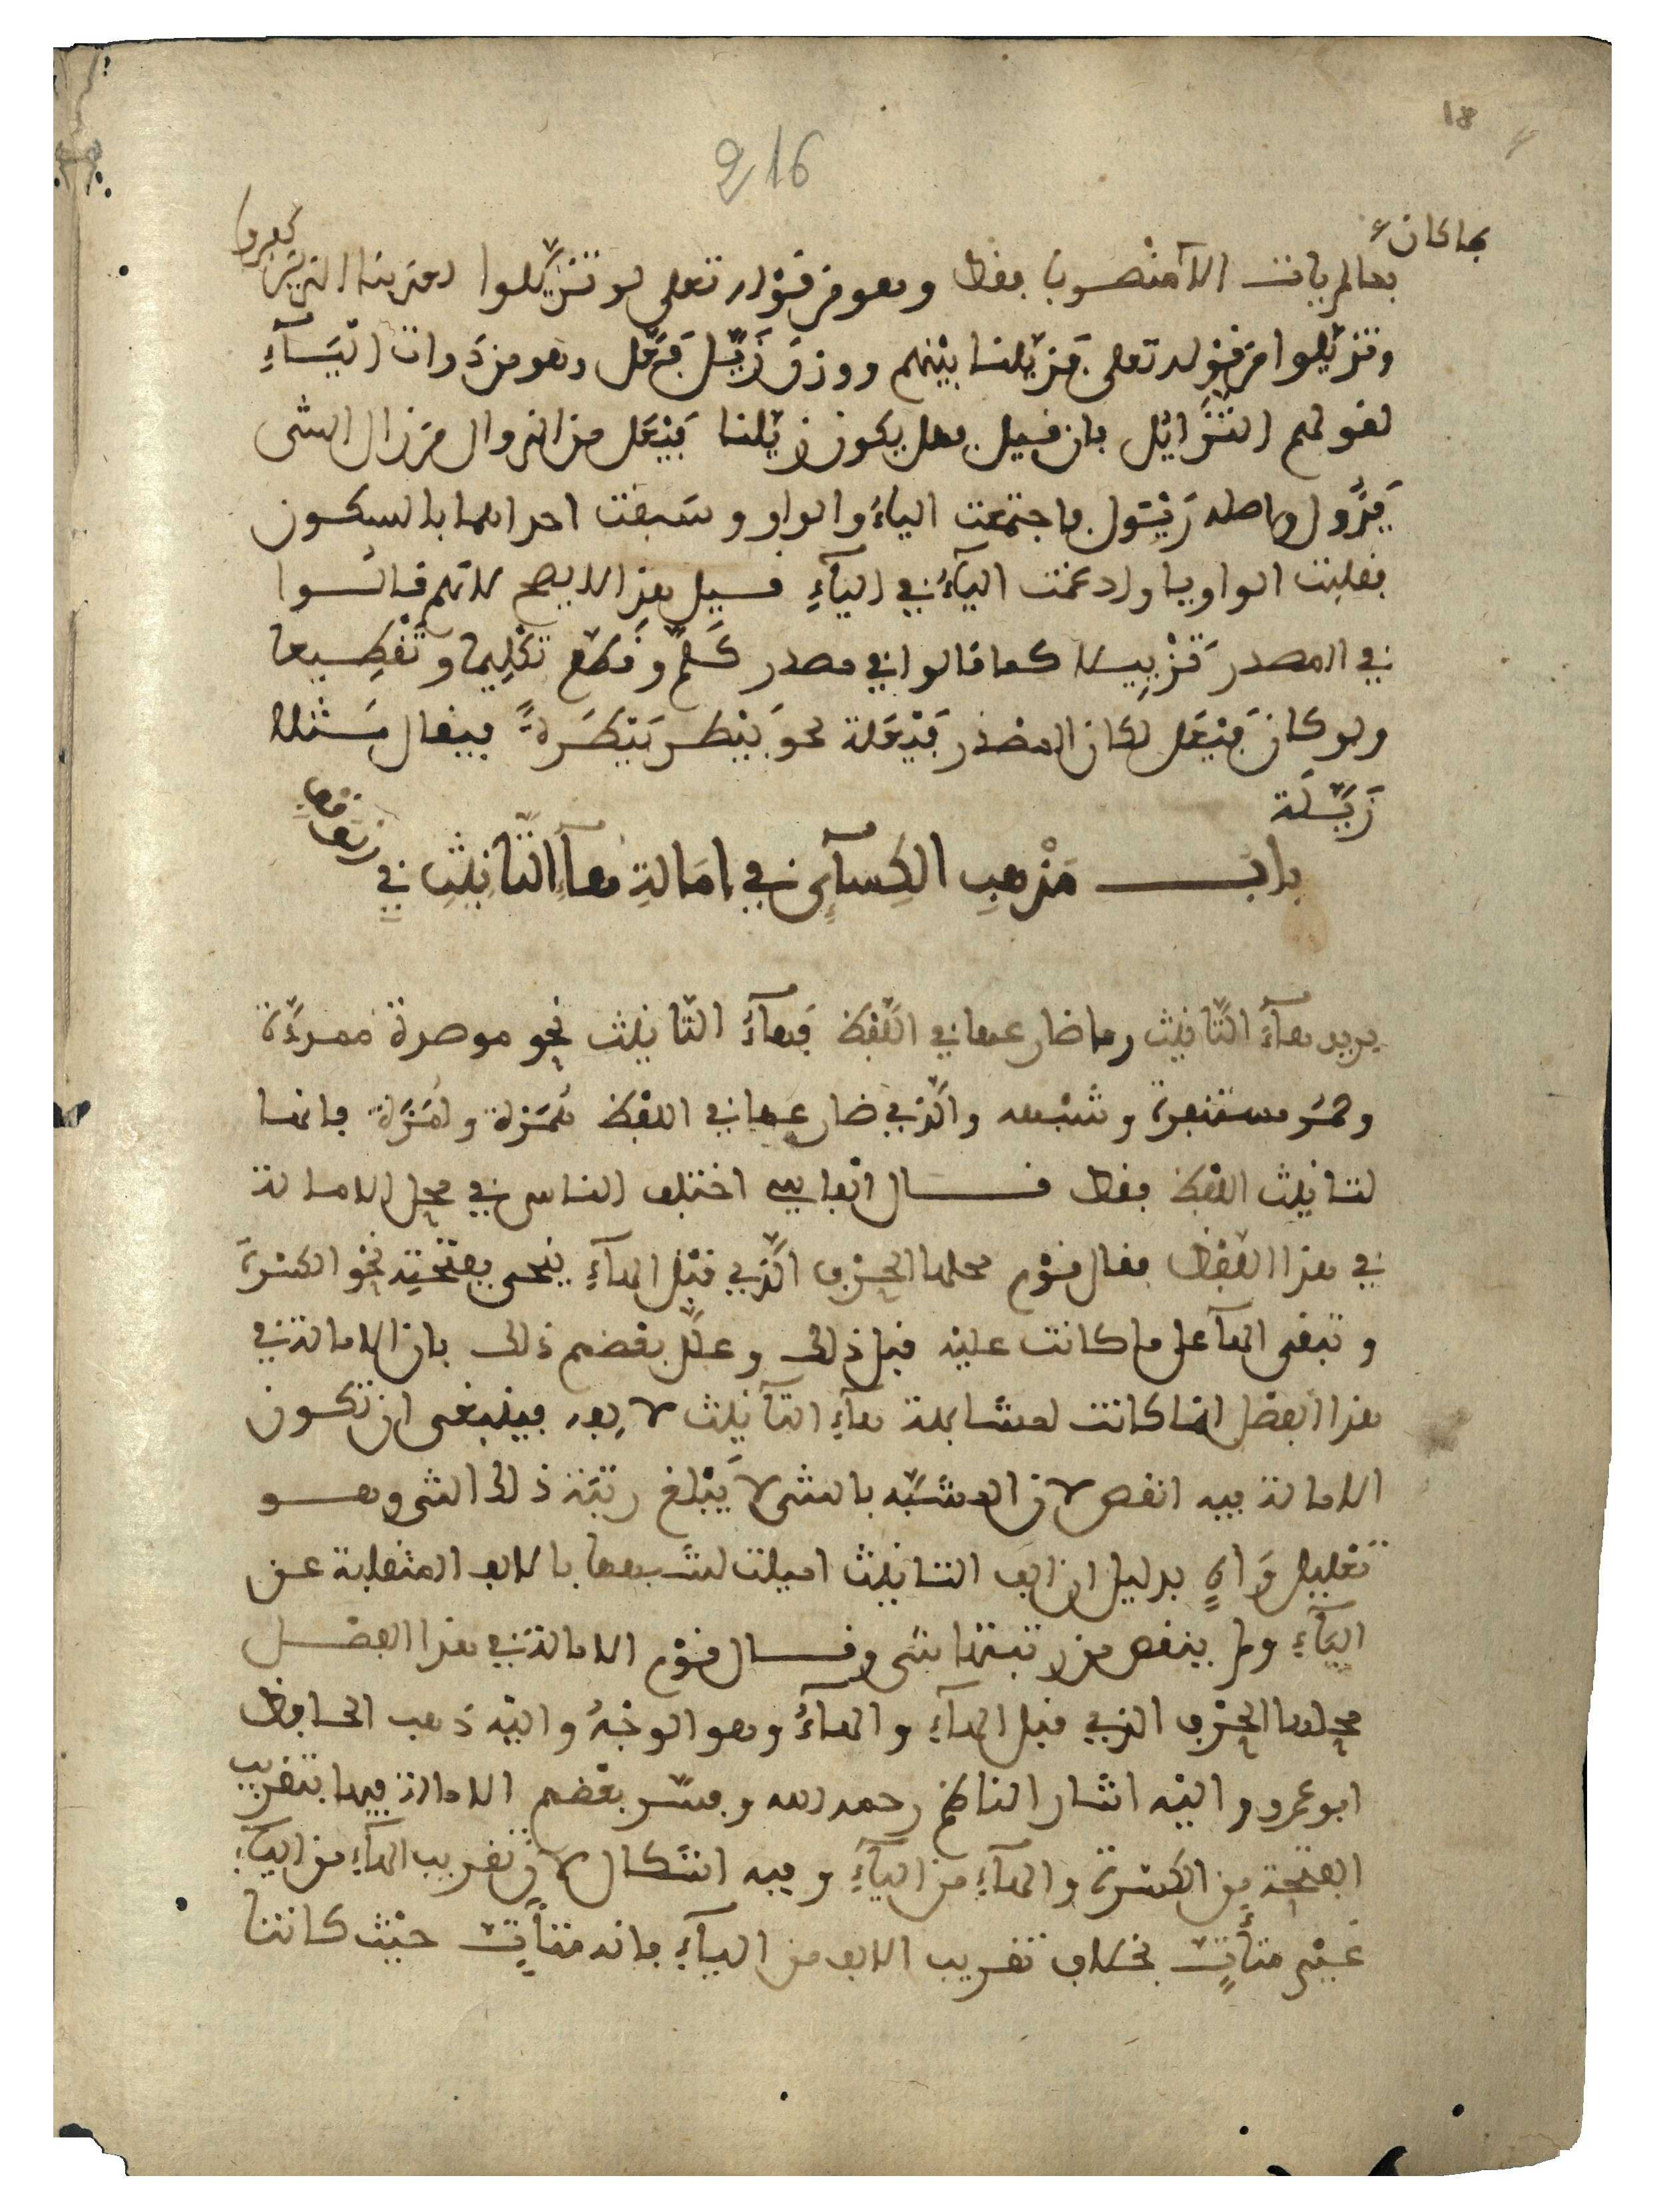 18
216
فما كان
منهما لم يات الا منصوبا فقط وهو من قوله تعلى لو تزيّلوا لعذبنا الذين كفروا
وتزيّلوا من قوله تعلى فزيّلنا بينهم ووزن زيّل فعّل وهو من ذوات اليآءِ
لقولهم التزايُل فان قيل هل يكون زيّلنا فَيْعَل من الزوال من زال الشى
يَزُول واصله زَيْوَل فاجتمعت الياءُ والواو وسَبقت احداهما بالسكون
فقلبت الواو يا وادغمت اليآءُ في اليآءِ قيل هذا لا يصح لانهم قالوا
في المصدر تَزْيِيلا كما قالوا في مصدر كلّم وقطّع تكْلِيما وتَقْطِيعا
ولو كان فَيْعَل لكان المصْدَر فَيْعَلة نحو بَيْطَر بَيْطَرةً فيقال مثله
زَيَّلَة
باب مَذْهبِ الكِسآئى في إمَالةِ هآءِ التّانيثِ في الوقف
يريد هآءَ التّانيث وما ضارعها في اللّفظ فهآءُ التّانيث نحو موصدة ممددة
وحُمُر مستنفرة وشبهه والذي ضارعها في اللفظ هُمَزة ولُمَزة فانها
لتانيث اللفظ فقط قال الفاسي اختلف الناس في محل الامالة
في هذا اللفظ فقال قوم محلها الحرْف الّذي قبْل الهآءِ ينحى بفتحته نحْو الكسْرة
وتبقى الهآ على ما كانت عليْه قبل ذلك وعلّل بعْضهم ذلك بان الامالة في
هذا الفصْل انما كانت لمشابهة هآءِ التّانيث لالفه فينبغى ان تكون
الامالة فيه انقص لان المشبّه بالشى لا يَبْلغ رتبة ذلك الشى وهو
تعْليل وَاهٍ بدليل ان الف التانيث اميلت لشبهها بالالف المنقلبة عن
اليآءِ ولم ينقص من رتبتها شى وقال قوم الامالة في هذا الفصْل
محلها الحرْف الذي قبل الهآءِ والهآءُ وهو الوجْهُ واليْه ذهب الحافظ
ابو عمرو واليْه اشار الناظم رحمه الله وفسّر بعْضهم الامالة فيها بتقريب
الفتحة من الكسْرة والهآءِ من اليآءِ وفيه اشكال لان تقريب الهآءِ من اليآءِ
غيْر متأتٍّ بخلاف تقريب الالف من اليآءِ فانه متأتٍّ حيْث كانتا